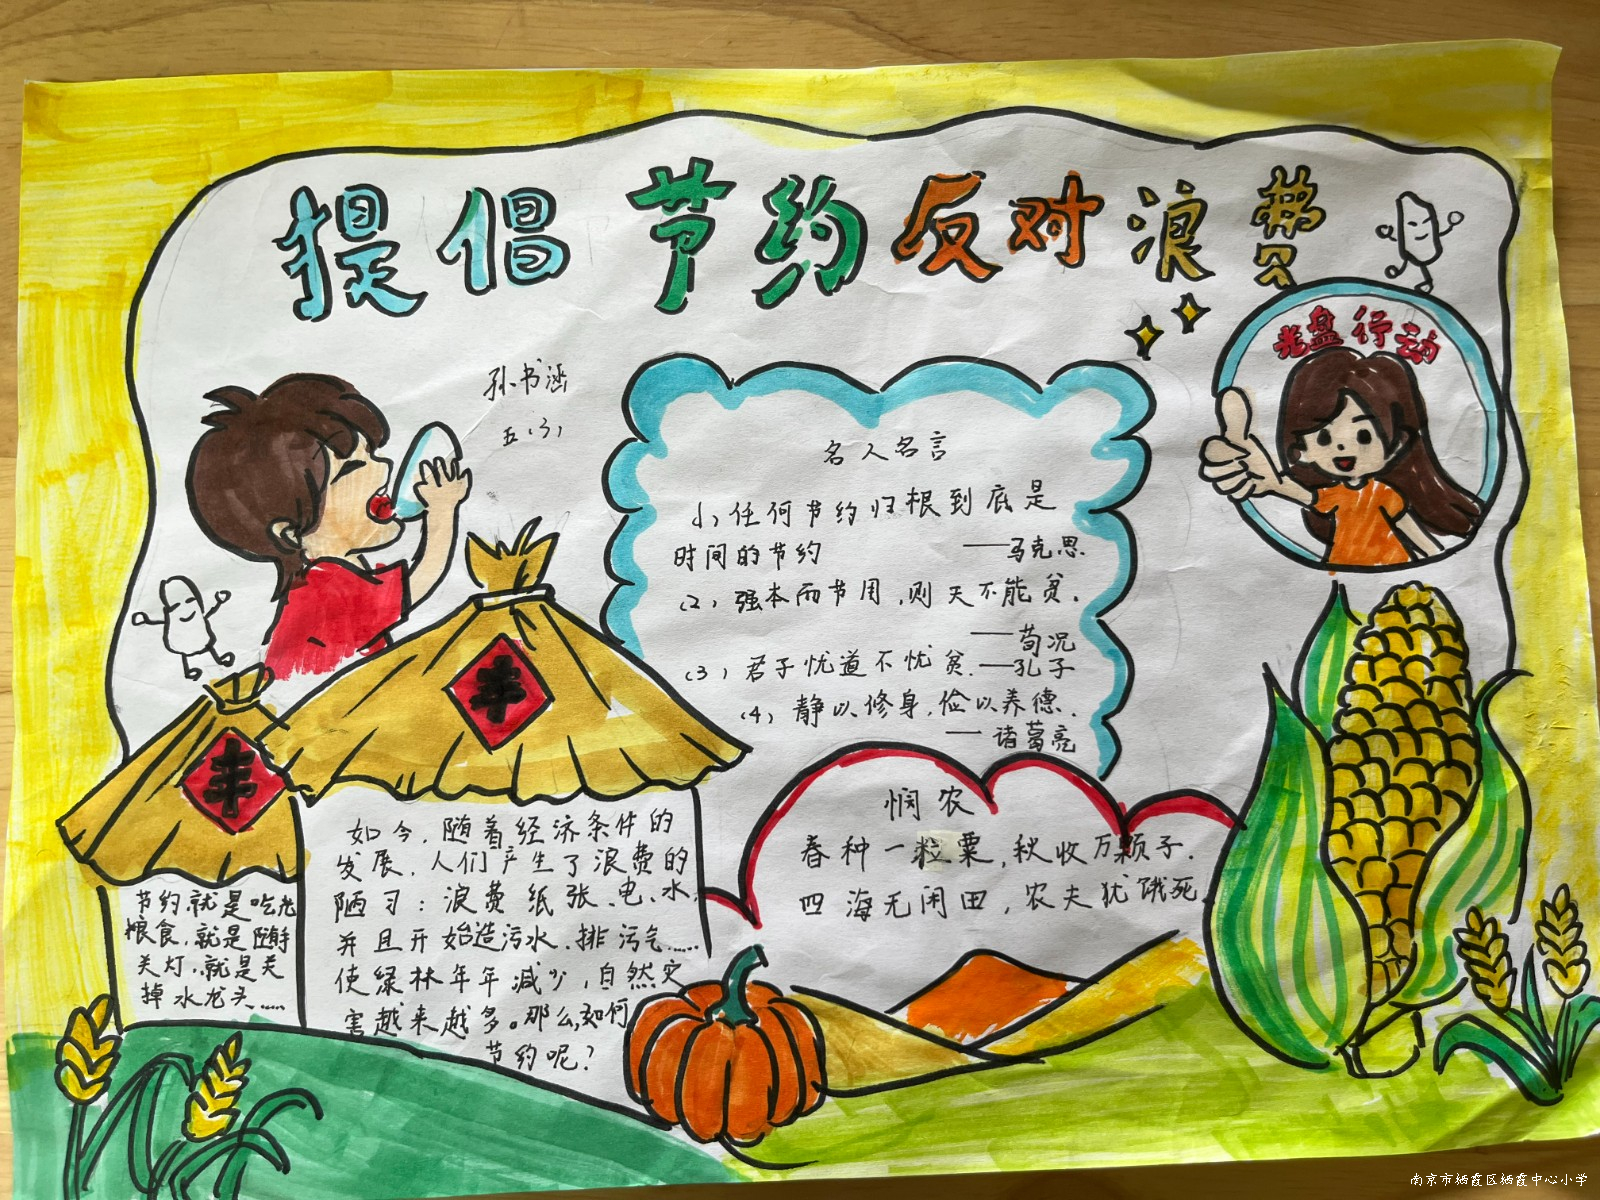 提倡节约反对浪费
光盘行动
孙书涵
五(3)
名人名言
(1)任何节约归根到底是
时间的节约 ——马克思.
(2)强本而节用,则天不能贫.
——荀况
(3)君子忧道不忧贫.——孔子
(4)静以修身,俭以养德.
——诸葛亮
丰
丰
悯农
春种一粒粟,秋收万颗子.
四海无闲田,农夫犹饿死.
如今,随着经济条件的
发展,人们产生了浪费的
陋习:浪费纸张、电、水,
并且开始造污水、排污气......
使绿林年年减少,自然灾
害越来越多。那么,如何
节约呢?
节约就是吃光
粮食,就是随手
关灯,就是关
掉水龙头......
南京市栖霞区栖霞中心小学